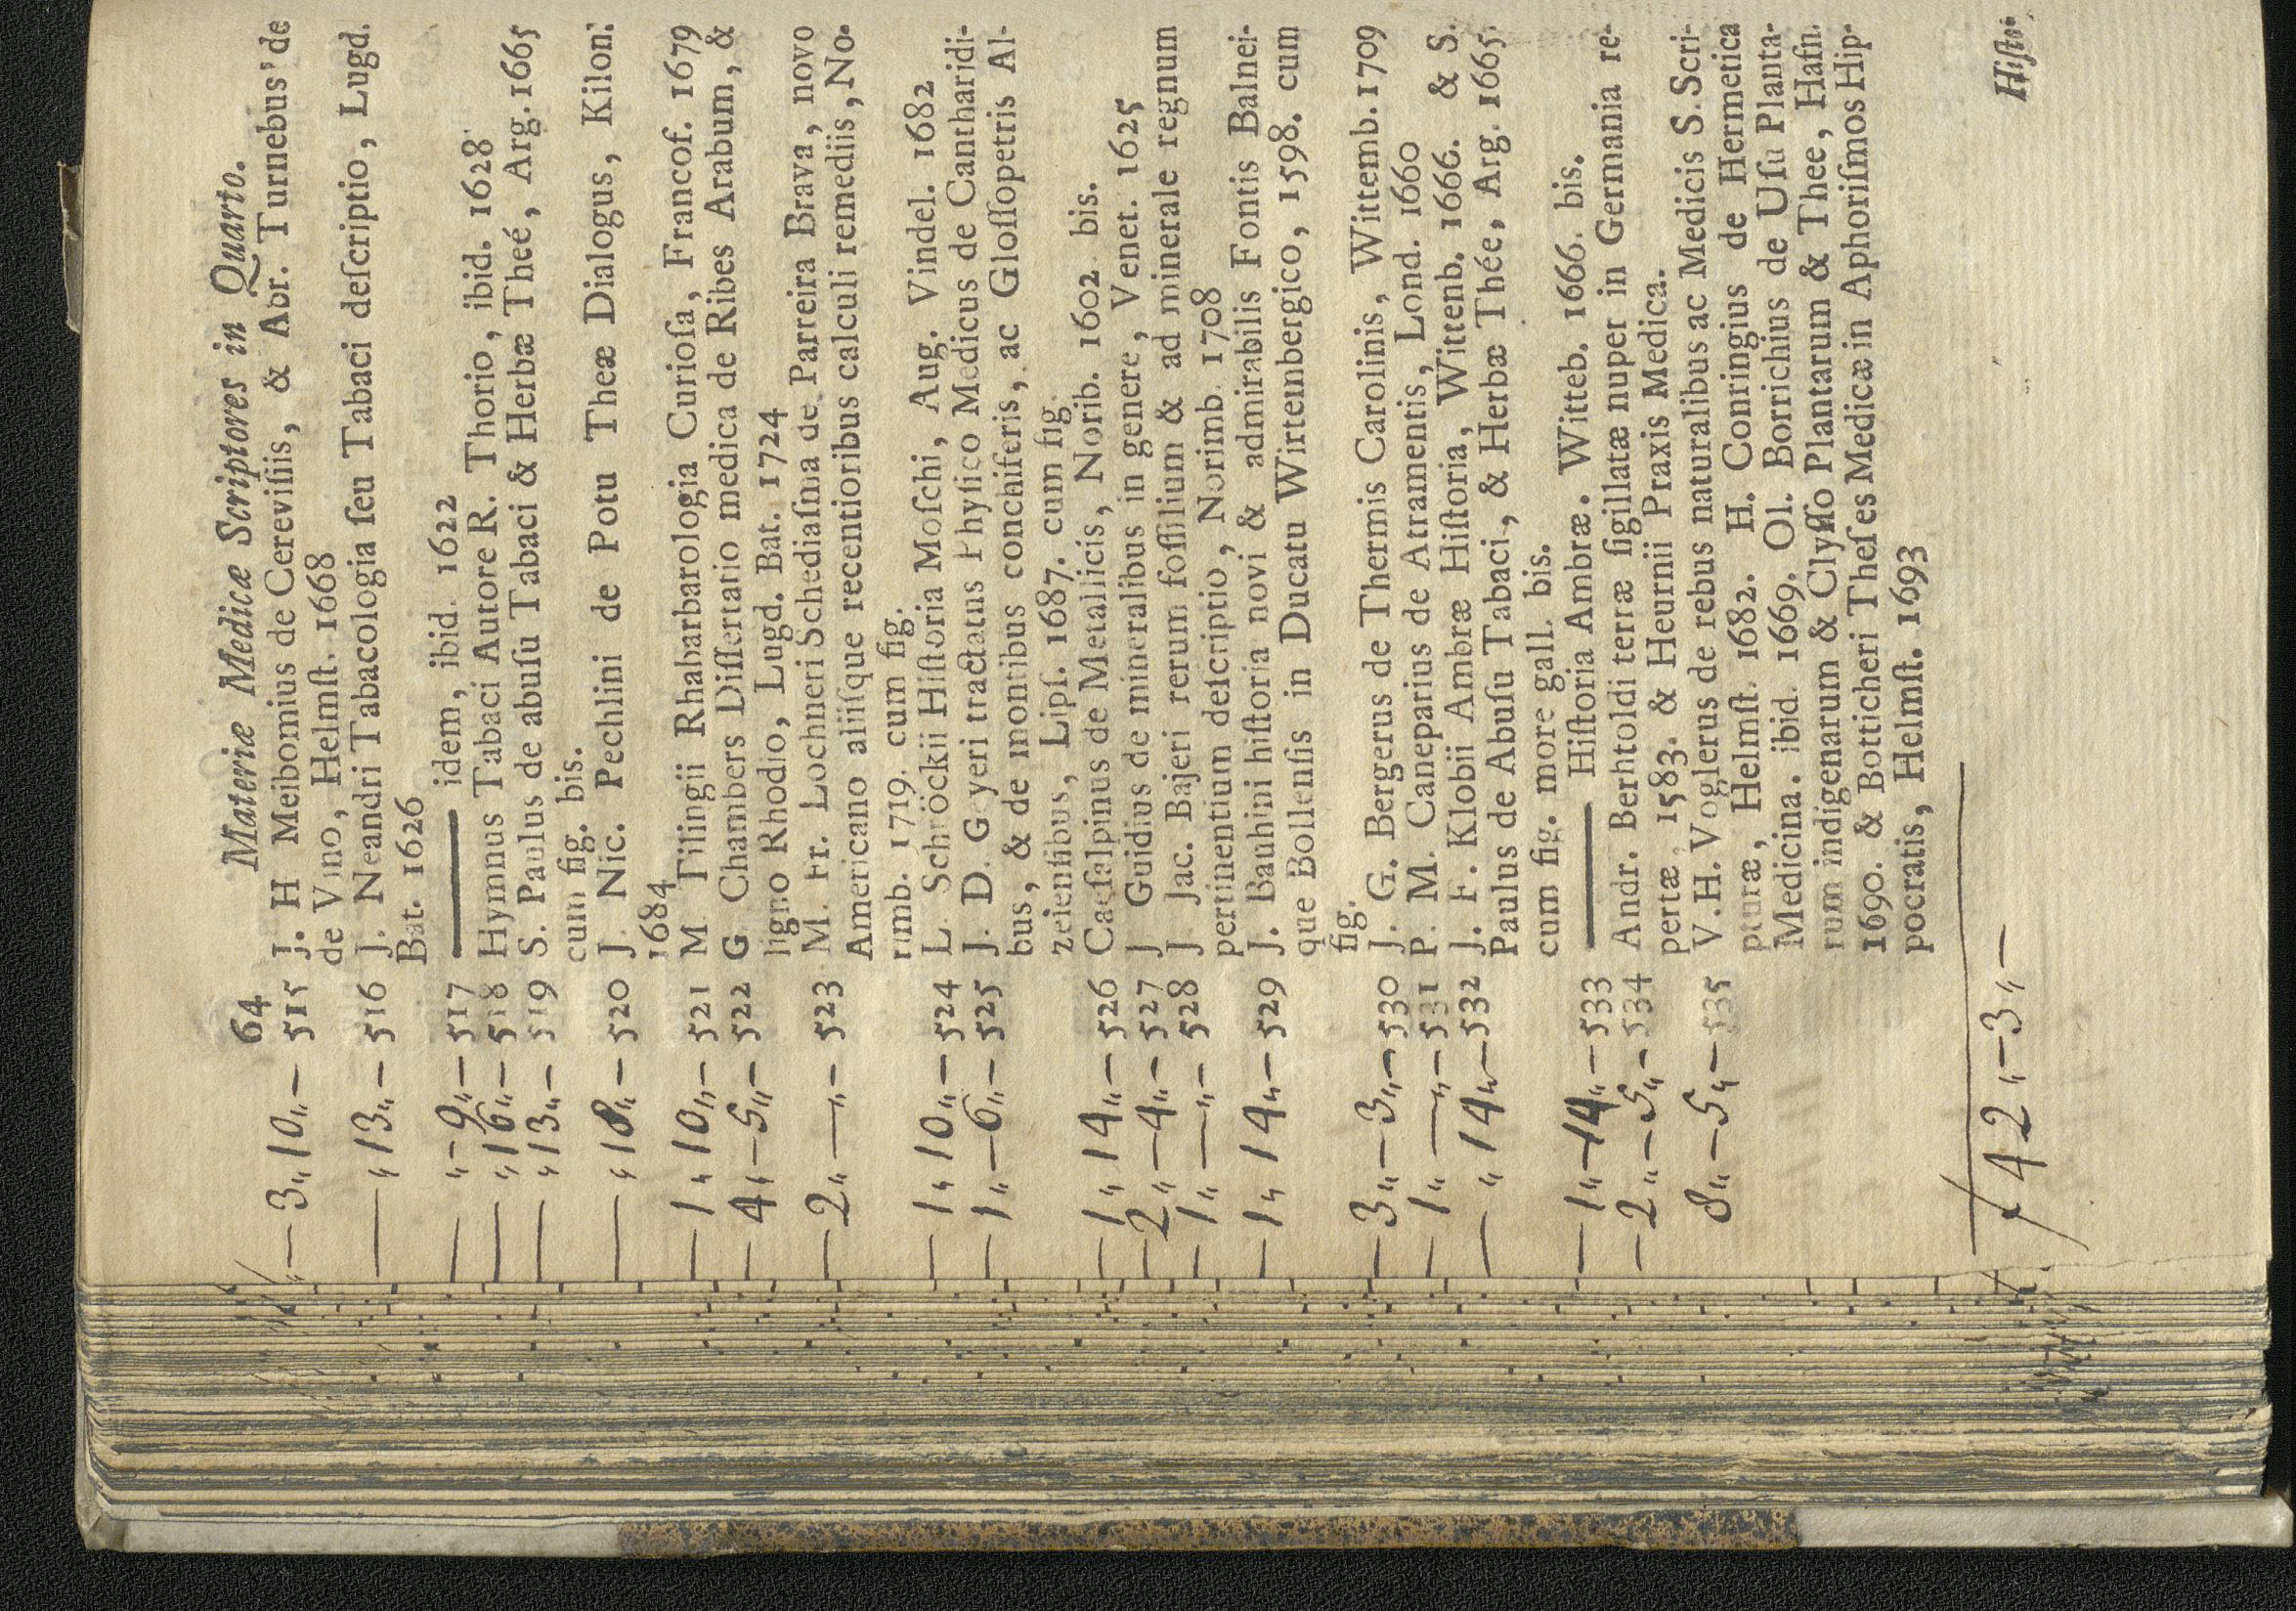 64 Materiæ Medicæ Scriptores in Quarto.
— 3 „ 10 „ — 515 J. H Meibomius de Cereviſiis, & Abr. Turnebus de
de Vino, Helmſt. 1668
— „ 13 „ — 516 J. Neandri Tabacologia ſeu Tabaci deſcriptio, Lugd.
Bat. 1626
— „ — 9 „ — 517 —— idem, ibid. 1622
— „ 16 „ — 518 Hymnus Tabaci Autore R. Thorio, ibid. 1628
— „ 13 „ — 519 S. Paulus de abuſu Tabaci & Herbæ Theé, Arg. 1665
cum fig. bis.
— „ 18 „ — 520 J. Nic. Pechlini de Potu Theæ Dialogus, Kilon.
1684
— 1 „ 10 „ — 521 M. Tilingii Rhabarbarologia Curioſa, Francof. 1679
— 4 „ — 5 „ — 522 G. Chambers Diſſertatio medica de Ribes Arabum, &
ligno Rhodio, Lugd. Bat. 1724
— 2 „ — „ — 523 M. Fr. Lochneri Schediaſma de Parreira Brava, novo
Americano aliiſque recentioribus calculi remediis, No-
rimb. 1719. cum fig.
— 1 „ 10 „ — 524 L. Schröckii Hiſtoria Moſchi, Aug. Vindel. 1682
— 1 „ — 6 „ — 525 J. D. Geyeri tractatus Phyſico Medicus de Cantharidi-
bus, & de montibus conchiferis, ac Gloſſopetris Al-
zeienſibus, Lipſ. 1687. cum fig.
— 1 „ 14 „ — 526 Caeſalpinus de Metallicis, Norib. 1602 bis.
— 2 „ — 4 „ — 527 J Guidius de mineralibus in genere, Venet. 1625
— 1 „ — „ — 528 J. Jac. Bajeri rerum foſſilium & ad minerale regnum
pertinentium deſcriptio, Norimb. 1708
— 1 „ 14 „ — 529 J. Bauhini hiſtoria novi & admirabilis Fontis Balnei-
que Bollenſis in Ducatu Wirtembergico, 1598. cum
fig.
— 3 „ — 3 „ — 530 J. G. Bergerus de Thermis Carolinis, Wittemb. 1709
— 1 „ — „ — 531 P. M. Caneparius de Atramentis, Lond. 1660
— „ 14 „ — 532 J. F. Klobii Ambræ Hiſtoria, Wittenb. 1666. & S.
Paulus de Abuſu Tabaci, & Herbæ Thée, Arg. 1665.
cum fig. more gall. bis.
— 1 „ — 14 „ — 533 —— Hiſtoria Ambræ. Witteb. 1666. bis.
— 2 „ — 5 „ — 534 Andr. Berhtoldi terræ ſigillatæ nuper in Germania re-
pertæ, 1583. & Heurnii Praxis Medica.
8 „ — 5 „ — 535 V. H. Voglerus de rebus naturalibus ac Medicis S. Scri-
pturæ, Helmſt. 1682. H. Conringius de Hermetica
Medicina. ibid. 1669. Ol. Borrichius de Uſu Planta-
rum indigenarum & Clyſſo Plantarum & Thee, Hafn.
1690. & Botticheri Theſes Medicæ in Aphoriſmos Hip-
pocratis, Helmſt. 1693
42 „ — 3 „ —
Hiſto-